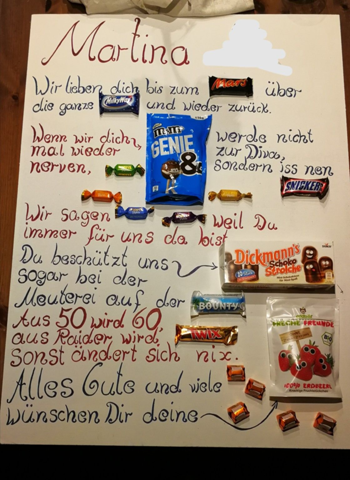 Martina
Wir lieben dich bis zum Mars über
die ganze MilkyWay und wieder zurück.
Wenn wir dich,
mal wieder
nerven,
m&m's
GENIE
&
werde nicht
zur Diva,
sondern iss nen
SNICKERS
Wir sagen weil Du
immer für uns da bist
Du beschützt uns
sogar bei der
Meuterei auf der
BOUNTY
Dickmann's
Schoko
Strolche
Aus 50 wird 60,
aus Raider wird,
TWIX
sonst ändert sich nix.
FREUNDE
Alles Gute und viele
wünschen Dir deine